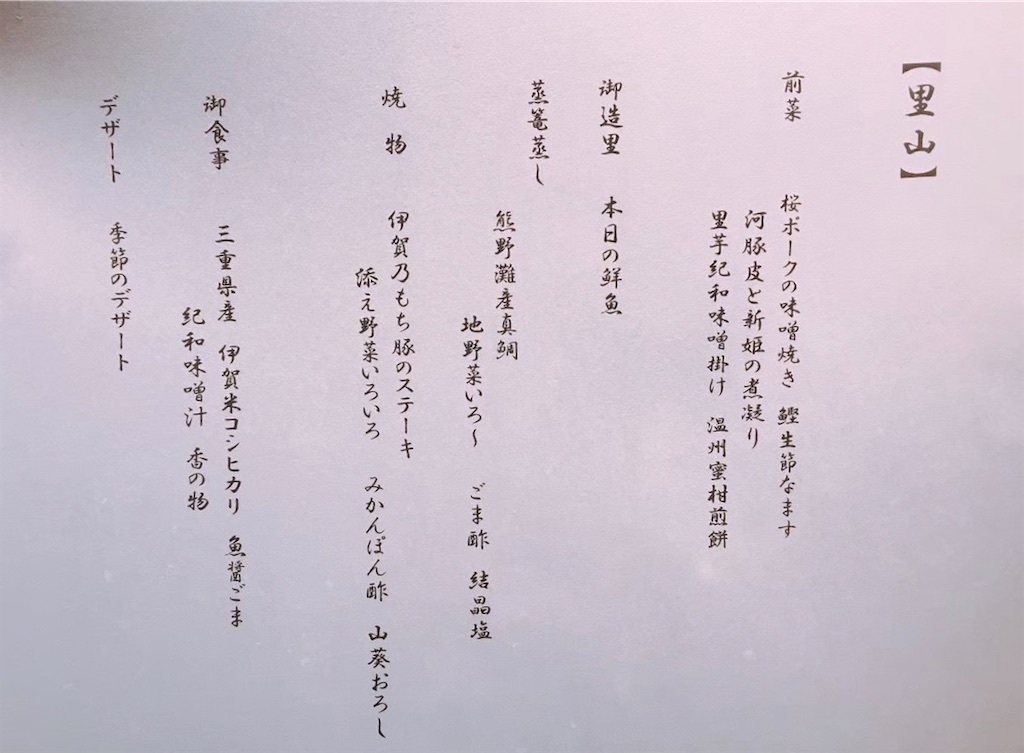 【里山】
前菜　桜ポークの味噌焼き　鰹生節なます
河豚皮と新姫の煮凝り
里芋紀和味噌掛け　温州蜜柑煎餅
御造里　本日の鮮魚
蒸篭蒸し
熊野灘産真鯛
地野菜いろ〜　ごま酢　結晶塩
焼　物　伊賀乃もち豚のステーキ
添え野菜いろいろ　みかんぽん酢　山葵おろし
御食事　三重県産　伊賀米コシヒカリ　魚醤ごま
紀和味噌汁　香の物
デザート　季節のデザート